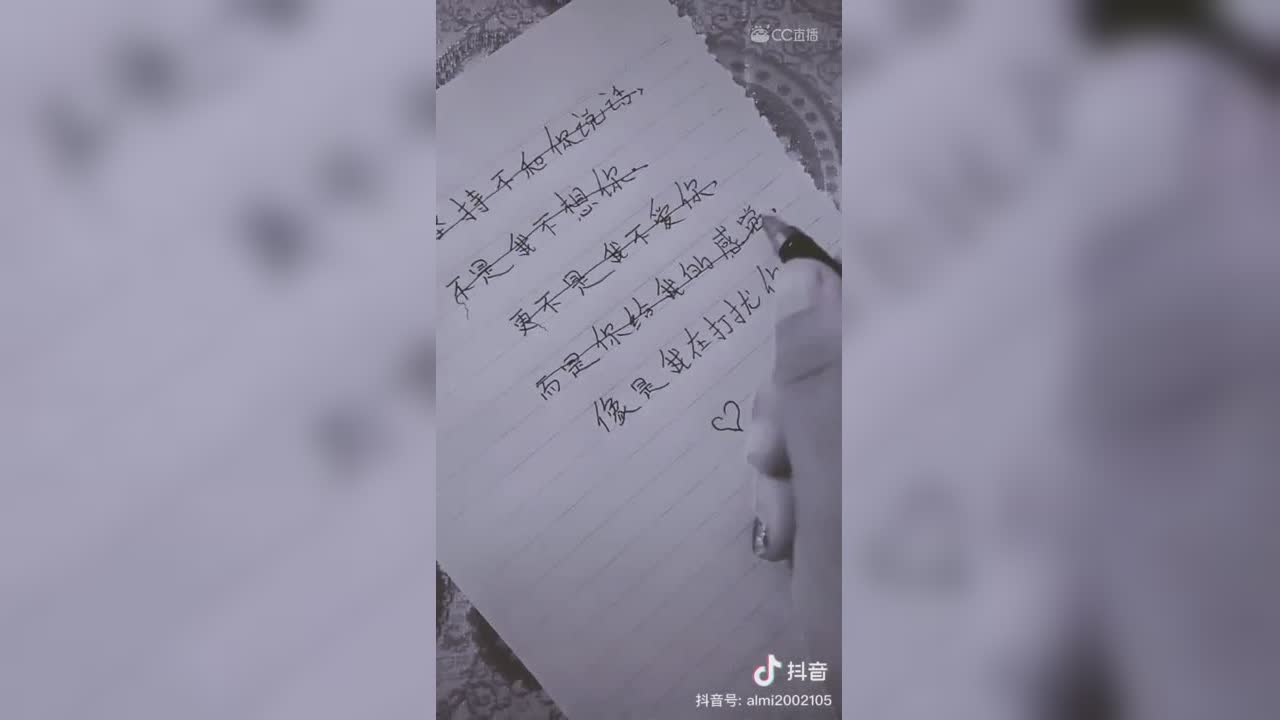 CC直播
坚持不和你说话,
不是我不想你.
更不是我不爱你,
而是你给我的感觉.
像是我在打扰你
抖音
抖音号: almi2002105